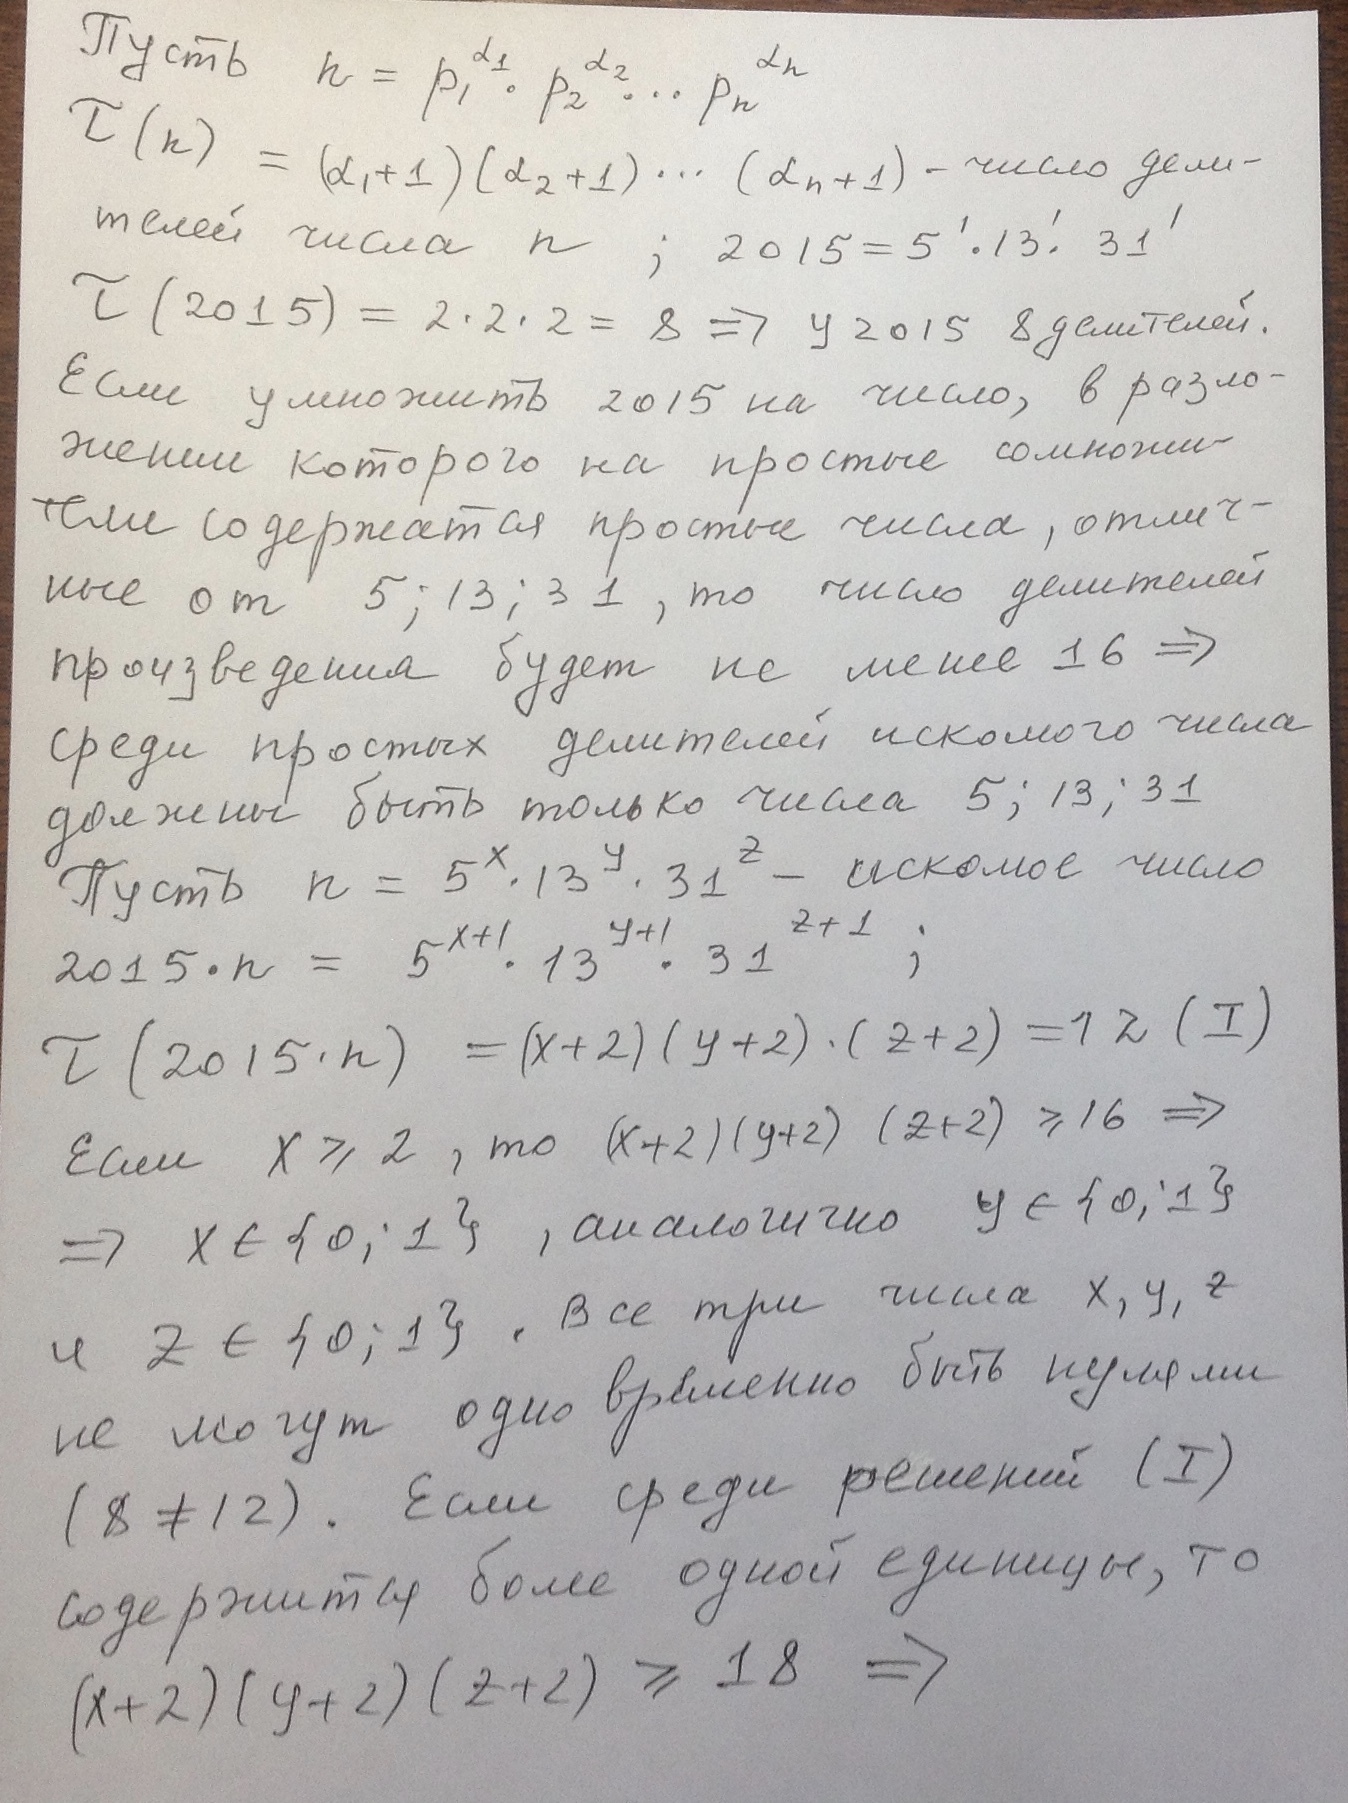 Пусть n = p₁^α1 · p₂^α2 · ... pₙ^αn
τ(n) = (α₁+1)(α₂+1) ... (αₙ+1) – число дели-
телей числа n ; 2015 = 5¹·13¹· 31¹
τ(2015) = 2·2·2 = 8 ⇒ у 2015 8 делителей.
Если умножить 2015 на число, в разло-
жении которого на простые сомножи-
тели содержатся простые числа, отлич-
ные от 5; 13; 31, то число делителей
произведения будет не менее 16 ⇒
среди простых делителей искомого числа
должны быть только числа 5; 13; 31
Пусть n = 5^x · 13^y · 31^z – искомое число
2015·n = 5^x+1 · 13^y+1 · 31^z+1 ;
τ(2015·n) = (x+2)(y+2)·(z+2) = 12 (I)
Если x ⩾ 2, то (x+2)(y+2)(z+2) ⩾ 16 ⇒
⇒ x ∈ {0; 1}, аналогично y ∈ {0; 1}
и z ∈ {0; 1}. Все три числа x, y, z
не могут одновременно быть нулями
(8 ≠ 12). Если среди решений (I)
содержится более одной единицы, то
(x+2)(y+2)(z+2) ⩾ 18 ⇒